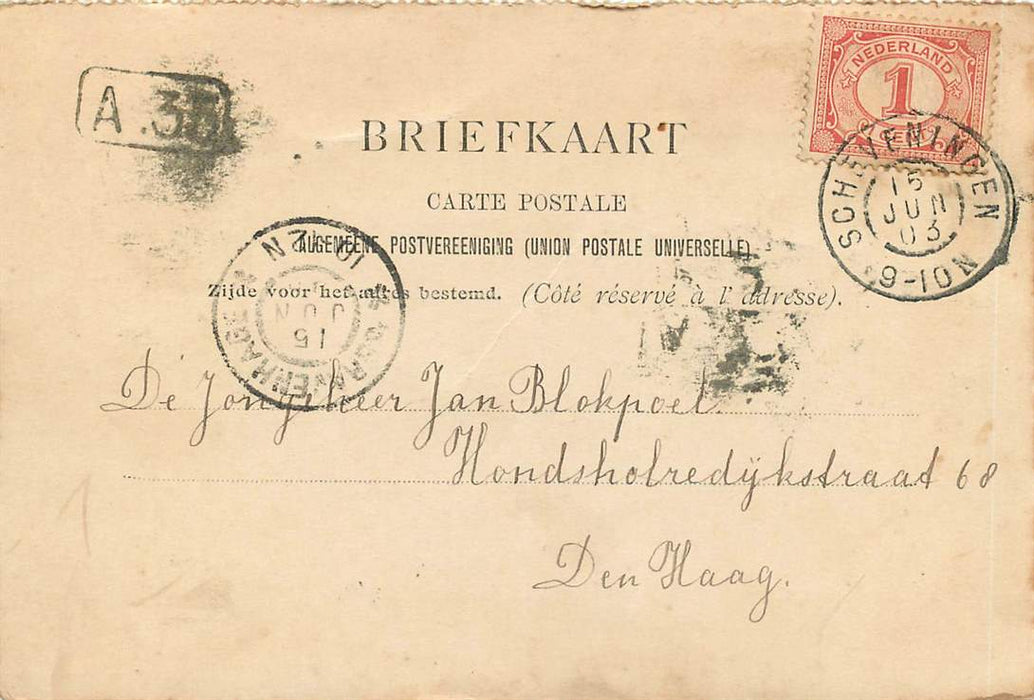 A.35
NEDERLAND
1
CENT
BRIEFKAART
CARTE POSTALE
ALGEMEENE POSTVEREENIGING (UNION POSTALE UNIVERSELLE)
Zijde voor het adres bestemd. (Côté réservé à l'adresse).
SCHEVENINGEN
15
JUN
03
9-10N
'SGRAVENHAGE
15
JUN
10-12N
De Jongeheer Jan Blokpoel.
Hondsholredijkstraat 68
Den Haag.